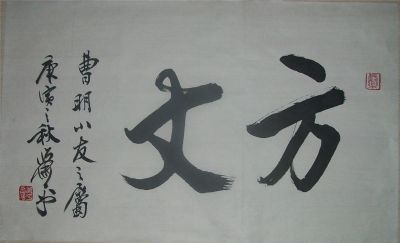 方丈
曹明小友之属
庚寅之秋